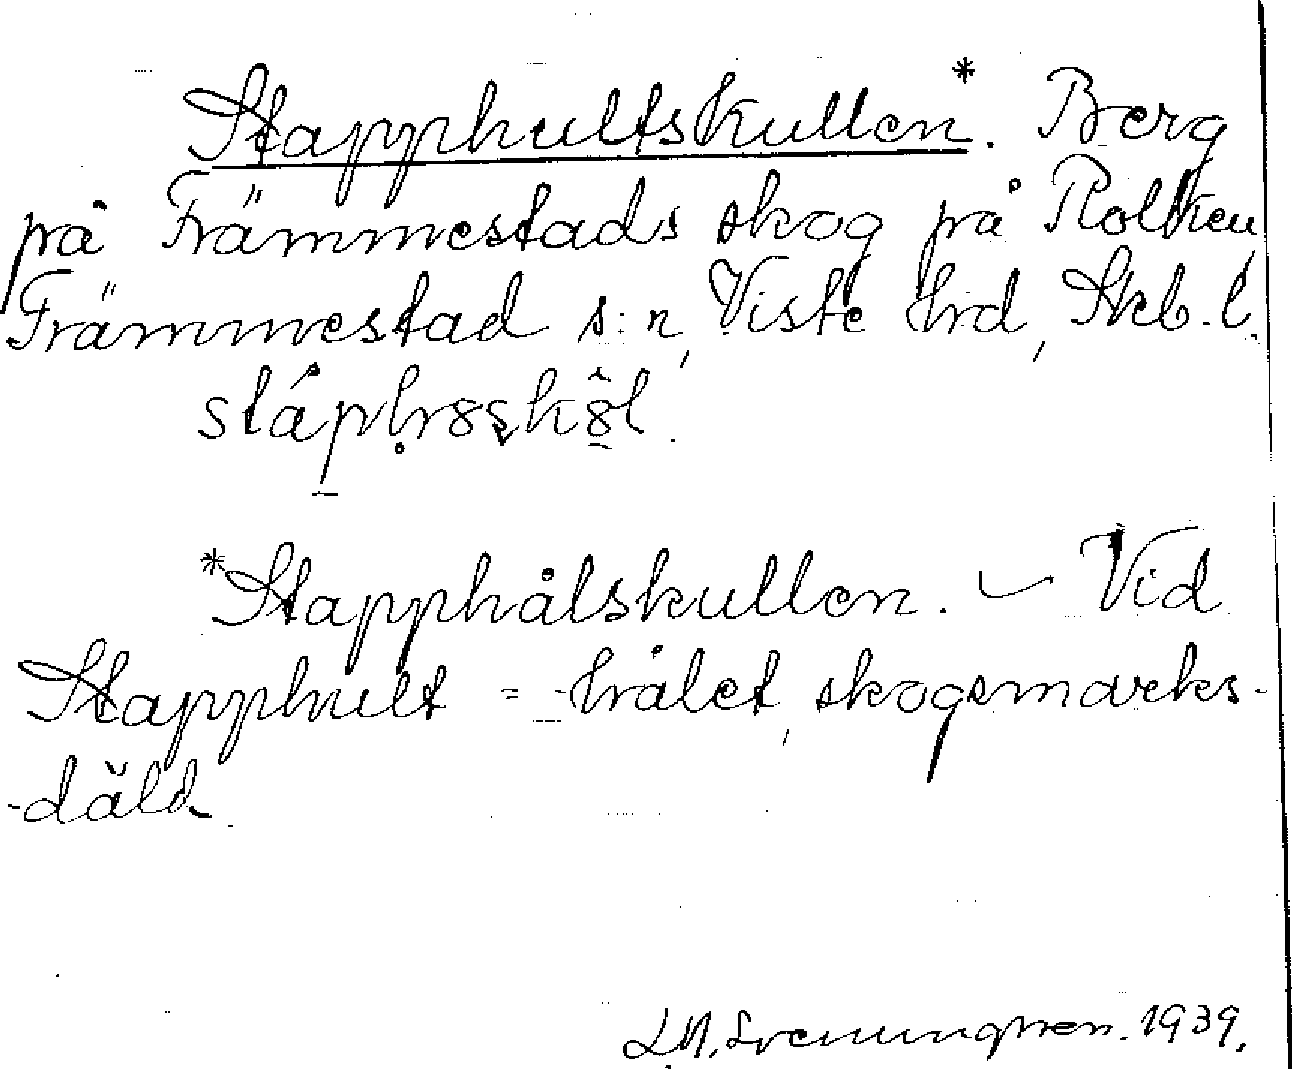 Stapphultskullen*. Berg
på Främmestads skog på Rolken
Främmestad s:n, Viste hrd, Skb. l.
*Stapphålskullen. Vid
Stapphult = -hålet, skogsmarks-
-däld
1939.